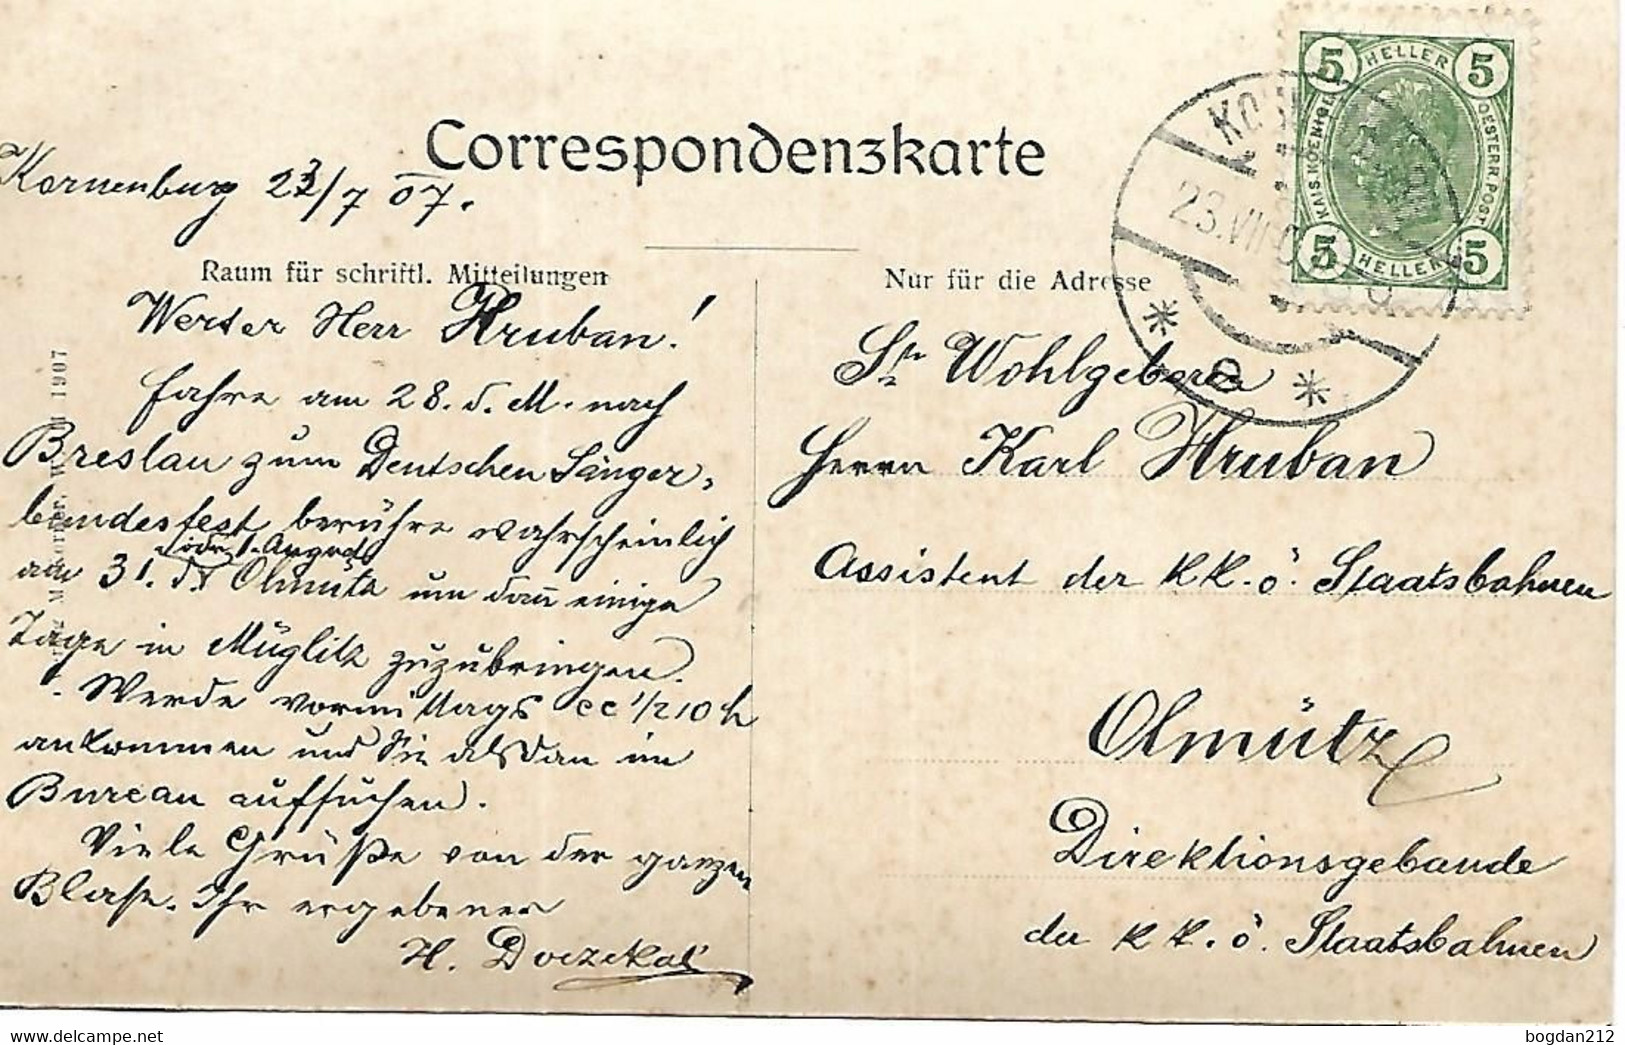 Correspondenzkarte
Korneuburg 23/7 07.
Raum für schriftl. Mitteilungen
Werter Herr Hruban!
fahre am 28. d. M. nach
Breslau zum Deutschen Sänger-
bundesfest, berühre wahrscheinlich
oder 1. August
am 31. d. Olmütz um dann einige
Tage in Müglitz zuzubringen.
Werde vormittags cc 1/2 10 h
ankommen und Sie alsdann im
Bureau aufsuchen.
Viele Grüße von der ganzen
Blase. Ihr ergebener
H.
1907
5 HELLER 5
KAIS. KOENIGL.
OESTERR. POST
5 HELLER 5
23.VII.0
* e *
Nur für die Adresse
Sr Wohlgeboren
Herrn Karl Hruban
Assistent der k k. ö. Staatsbahnen
Olmütz
Direktionsgebaude
der k k. ö. Staatsbahnen
www.delcampe.net
bogdan212